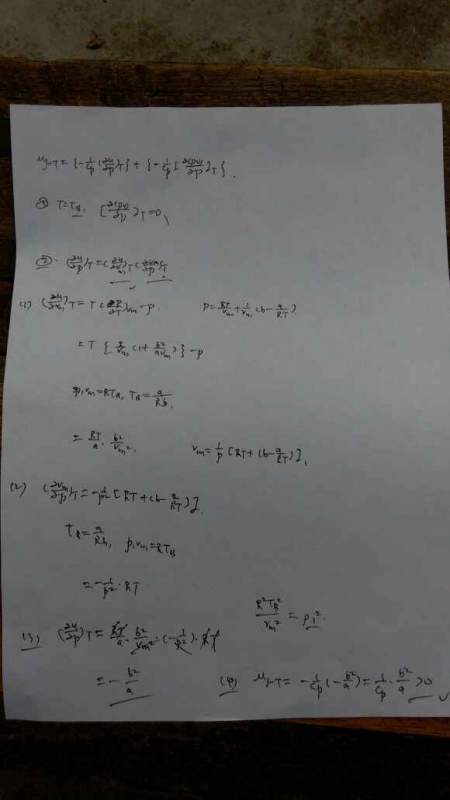 μJ-T = {-1/Cp (∂U/∂p)T} + {-1/Cp [∂(pV)/∂p]T}.
① T=TB. [∂(pV)/∂p]T=0,
②. (∂U/∂p)T = (∂U/∂Vm)T (∂Vm/∂p)T
(1) (∂U/∂Vm)T = T(∂P/∂T)Vm - p. P = RT/Vm + 1/Vm (b - a/RT)
= T { R/Vm (1+ } - p
p,Vm=RTB, TB = a/Rb,
= RT/a · b²/Vm². Vm = 1/p [RT+(b - a/RT)],
(2) (∂Vm/∂p)T = -1/p² [RT+(b - a/RT)]
TB = a/Rb, p,Vm=RTB
= -1/p² · RT
R²TB²/Vm² = p,².
(3) (∂U/∂p)T = RT/a · b²/Vm² · (-1/p²) · RT
= -b²/a
(4) μJ-T = -1/Cp (-b²/a) = 1/Cp · b²/a >0